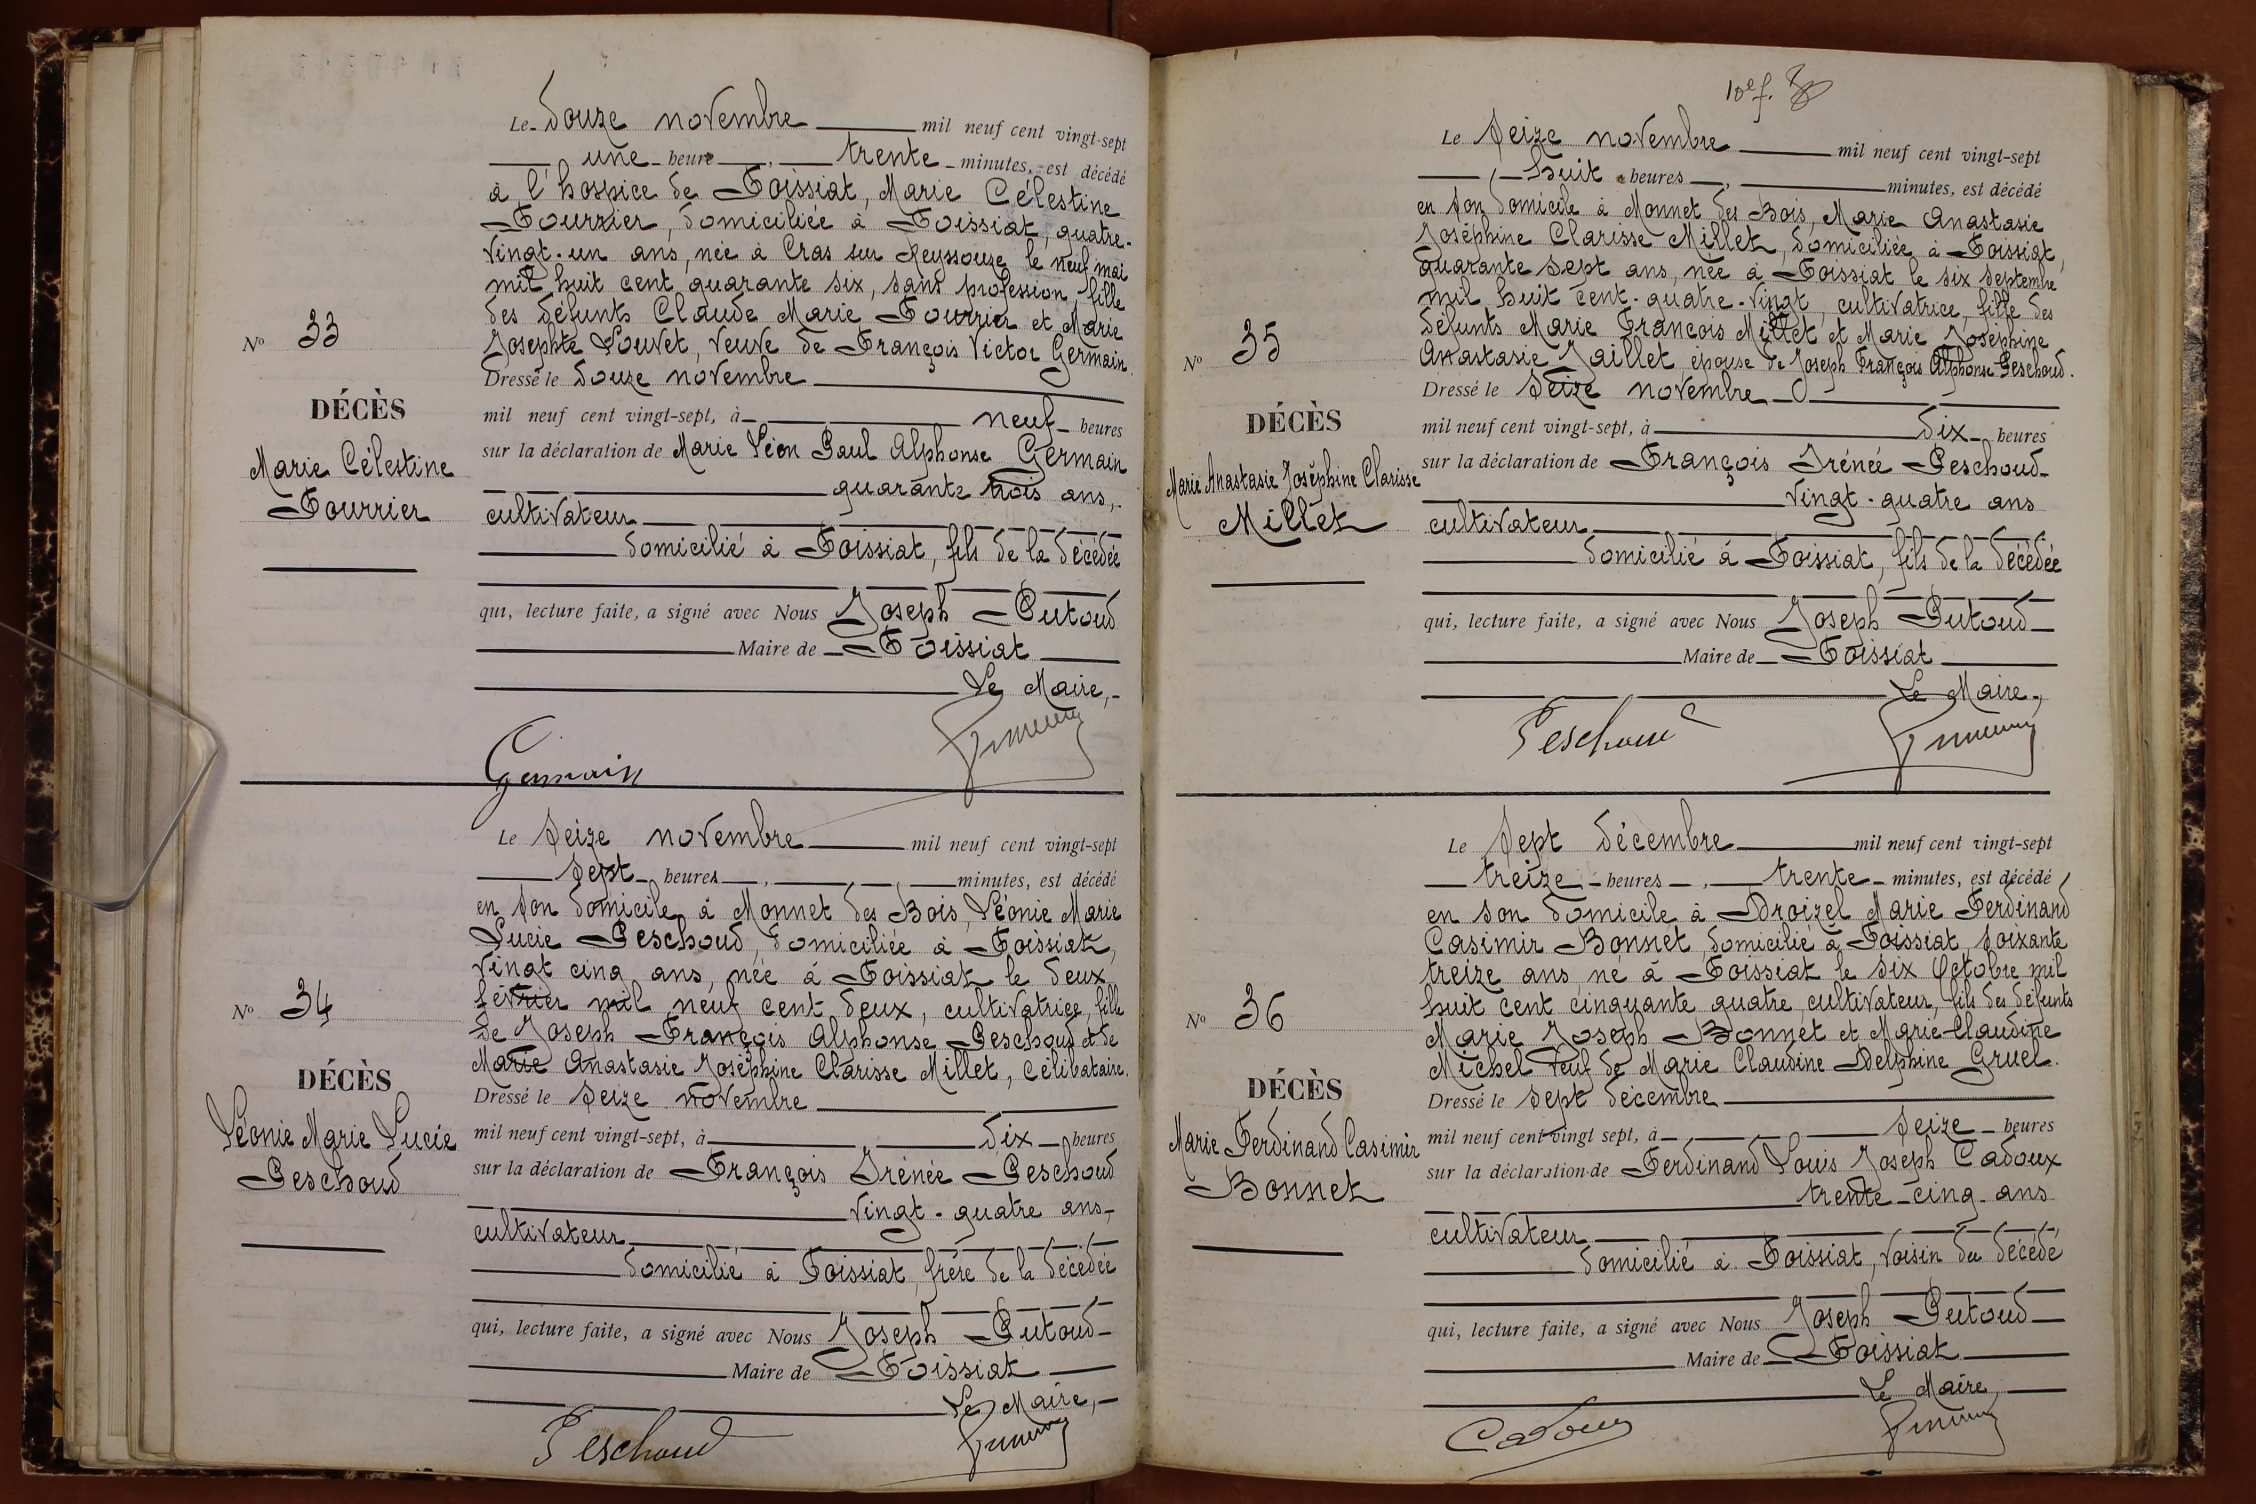 Le douze novembre mil neuf cent vingt-sept
une heure, trente minutes, est décédé
à l'hospice de Foissiat, Marie Célestine
Fourrier, domiciliée à Foissiat, quatre-
vingt-un ans, née à Cras sur Reyssouze le neuf mai
mil huit cent quarante six, sans profession, fille
des défunts Claude Marie Fourrier et Marie
Josephte Louvet, veuve de François Victor Germain.
Nº 33
Dressé le douze novembre
DÉCÈS
mil neuf cent vingt-sept, à neuf heures
Marie Célestine
Fourrier
sur la déclaration de Marie Léon Paul Alphonse Germain
quarante trois ans,
cultivateur
domicilié à Foissiat, fils de la décédée
qui, lecture faite, a signé avec Nous Joseph Putoud
Maire de Foissiat
Le Maire,
Germain
Le Seize novembre mil neuf cent vingt-sept
sept heures, minutes, est décédé
en son domicile à Monnet des Bois, Léonie Marie
Lucie Peschoud, domiciliée à Foissiat,
vingt cinq ans, née à Foissiat le deux
février mil neuf cent deux, cultivatrice, fille
de Joseph François Alphonse Peschoud et de
Marie Anastasie Joséphine Clarisse Millet, célibataire.
Nº 34
Dressé le seize novembre
DÉCÈS
mil neuf cent vingt-sept, à dix heures
Léonie Marie Lucie
Peschoud
sur la déclaration de François Irénée Peschoud
vingt-quatre ans,
cultivateur
domicilié à Foissiat, frère de la décédée
qui, lecture faite, a signé avec Nous Joseph Putoud
Maire de Foissiat
Le Maire,
Peschoud
10e f.
Le Seize novembre mil neuf cent vingt-sept
huit heures, minutes, est décédé
en son domicile à Monnet des Bois, Marie Anastasie
Joséphine Clarisse Millet, domiciliée à Foissiat,
quarante sept ans, née à Foissiat le six septembre
mil huit cent-quatre-vingt, cultivatrice, fille des
défunts Marie François Millet et Marie Joséphine
Anastasie Jaillet épouse de Joseph François Alphonse Peschoud.
Nº 35
Dressé le Seize novembre
DÉCÈS
mil neuf cent vingt-sept, à dix heures
Marie Anastasie Joséphine Clarisse
Millet
sur la déclaration de François Irénée Peschoud
vingt-quatre ans
cultivateur
domicilié à Foissiat, fils de la décédée
qui, lecture faite, a signé avec Nous Joseph Putoud
Maire de Foissiat
Le Maire,
Peschoud
Le Sept décembre mil neuf cent vingt-sept
treize heures, trente minutes, est décédé
en son domicile à Droizel Marie Ferdinand
Casimir Bonnet, domicilié à Foissiat, soixante
treize ans, né à Foissiat le six Octobre mil
huit cent cinquante quatre, cultivateur, fils des défunts
Marie Joseph Bonnet et Marie-Claudine
Michel veuf de Marie Claudine Delphine Gruel.
Nº 36
Dressé le sept décembre
DÉCÈS
mil neuf cent vingt sept, à seize heures
Marie Ferdinand Casimir
Bonnet
sur la déclaration de Ferdinand Louis Joseph Cadoux
trente-cinq ans
cultivateur
domicilié à Foissiat, voisin du décédé
qui, lecture faite, a signé avec Nous Joseph Putoud
Maire de Foissiat
Le Maire,
Cadoux